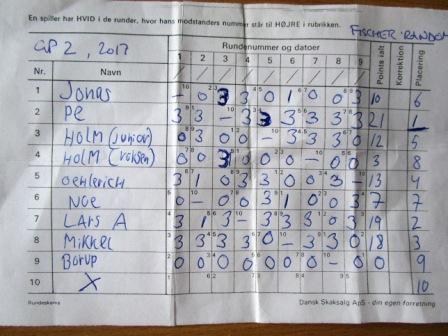 En spiller har HVID i de runder, hvor hans modstanders nummer står til HØJRE i rubrikken.
FISCHER-RANDOM
GP 2, 2017
Rundenummer og datoer
Points ialt
Korrektion
Placering
Nr. Navn 1 2 3 4 5 6 7 8 9
1 Jonas - 0 3 3 0 1 0 0 3 10 6
2 PC 3 3 - 3 3 3 3 3 21 1
3 HOLM (junior) 0 3 0 0 - 3 3 3 0 12 5
4 HOLM (voksen) 0 0 3 0 0 0 - 0 0 3 8
5 oehlerich 3 1 0 3 3 0 0 3 - 13 4
6 NOE 0 - 0 0 3 1 0 0 3 7 7
7 LARS A 3 1 3 - 3 3 3 0 3 19 2
8 Mikkel 3 3 3 3 0 - 3 3 0 18 3
9 Borup 0 0 0 0 0 0 0 0 - 0 9
10 X 10
Rundeskema
Dansk Skaksalg ApS - din egen forretning